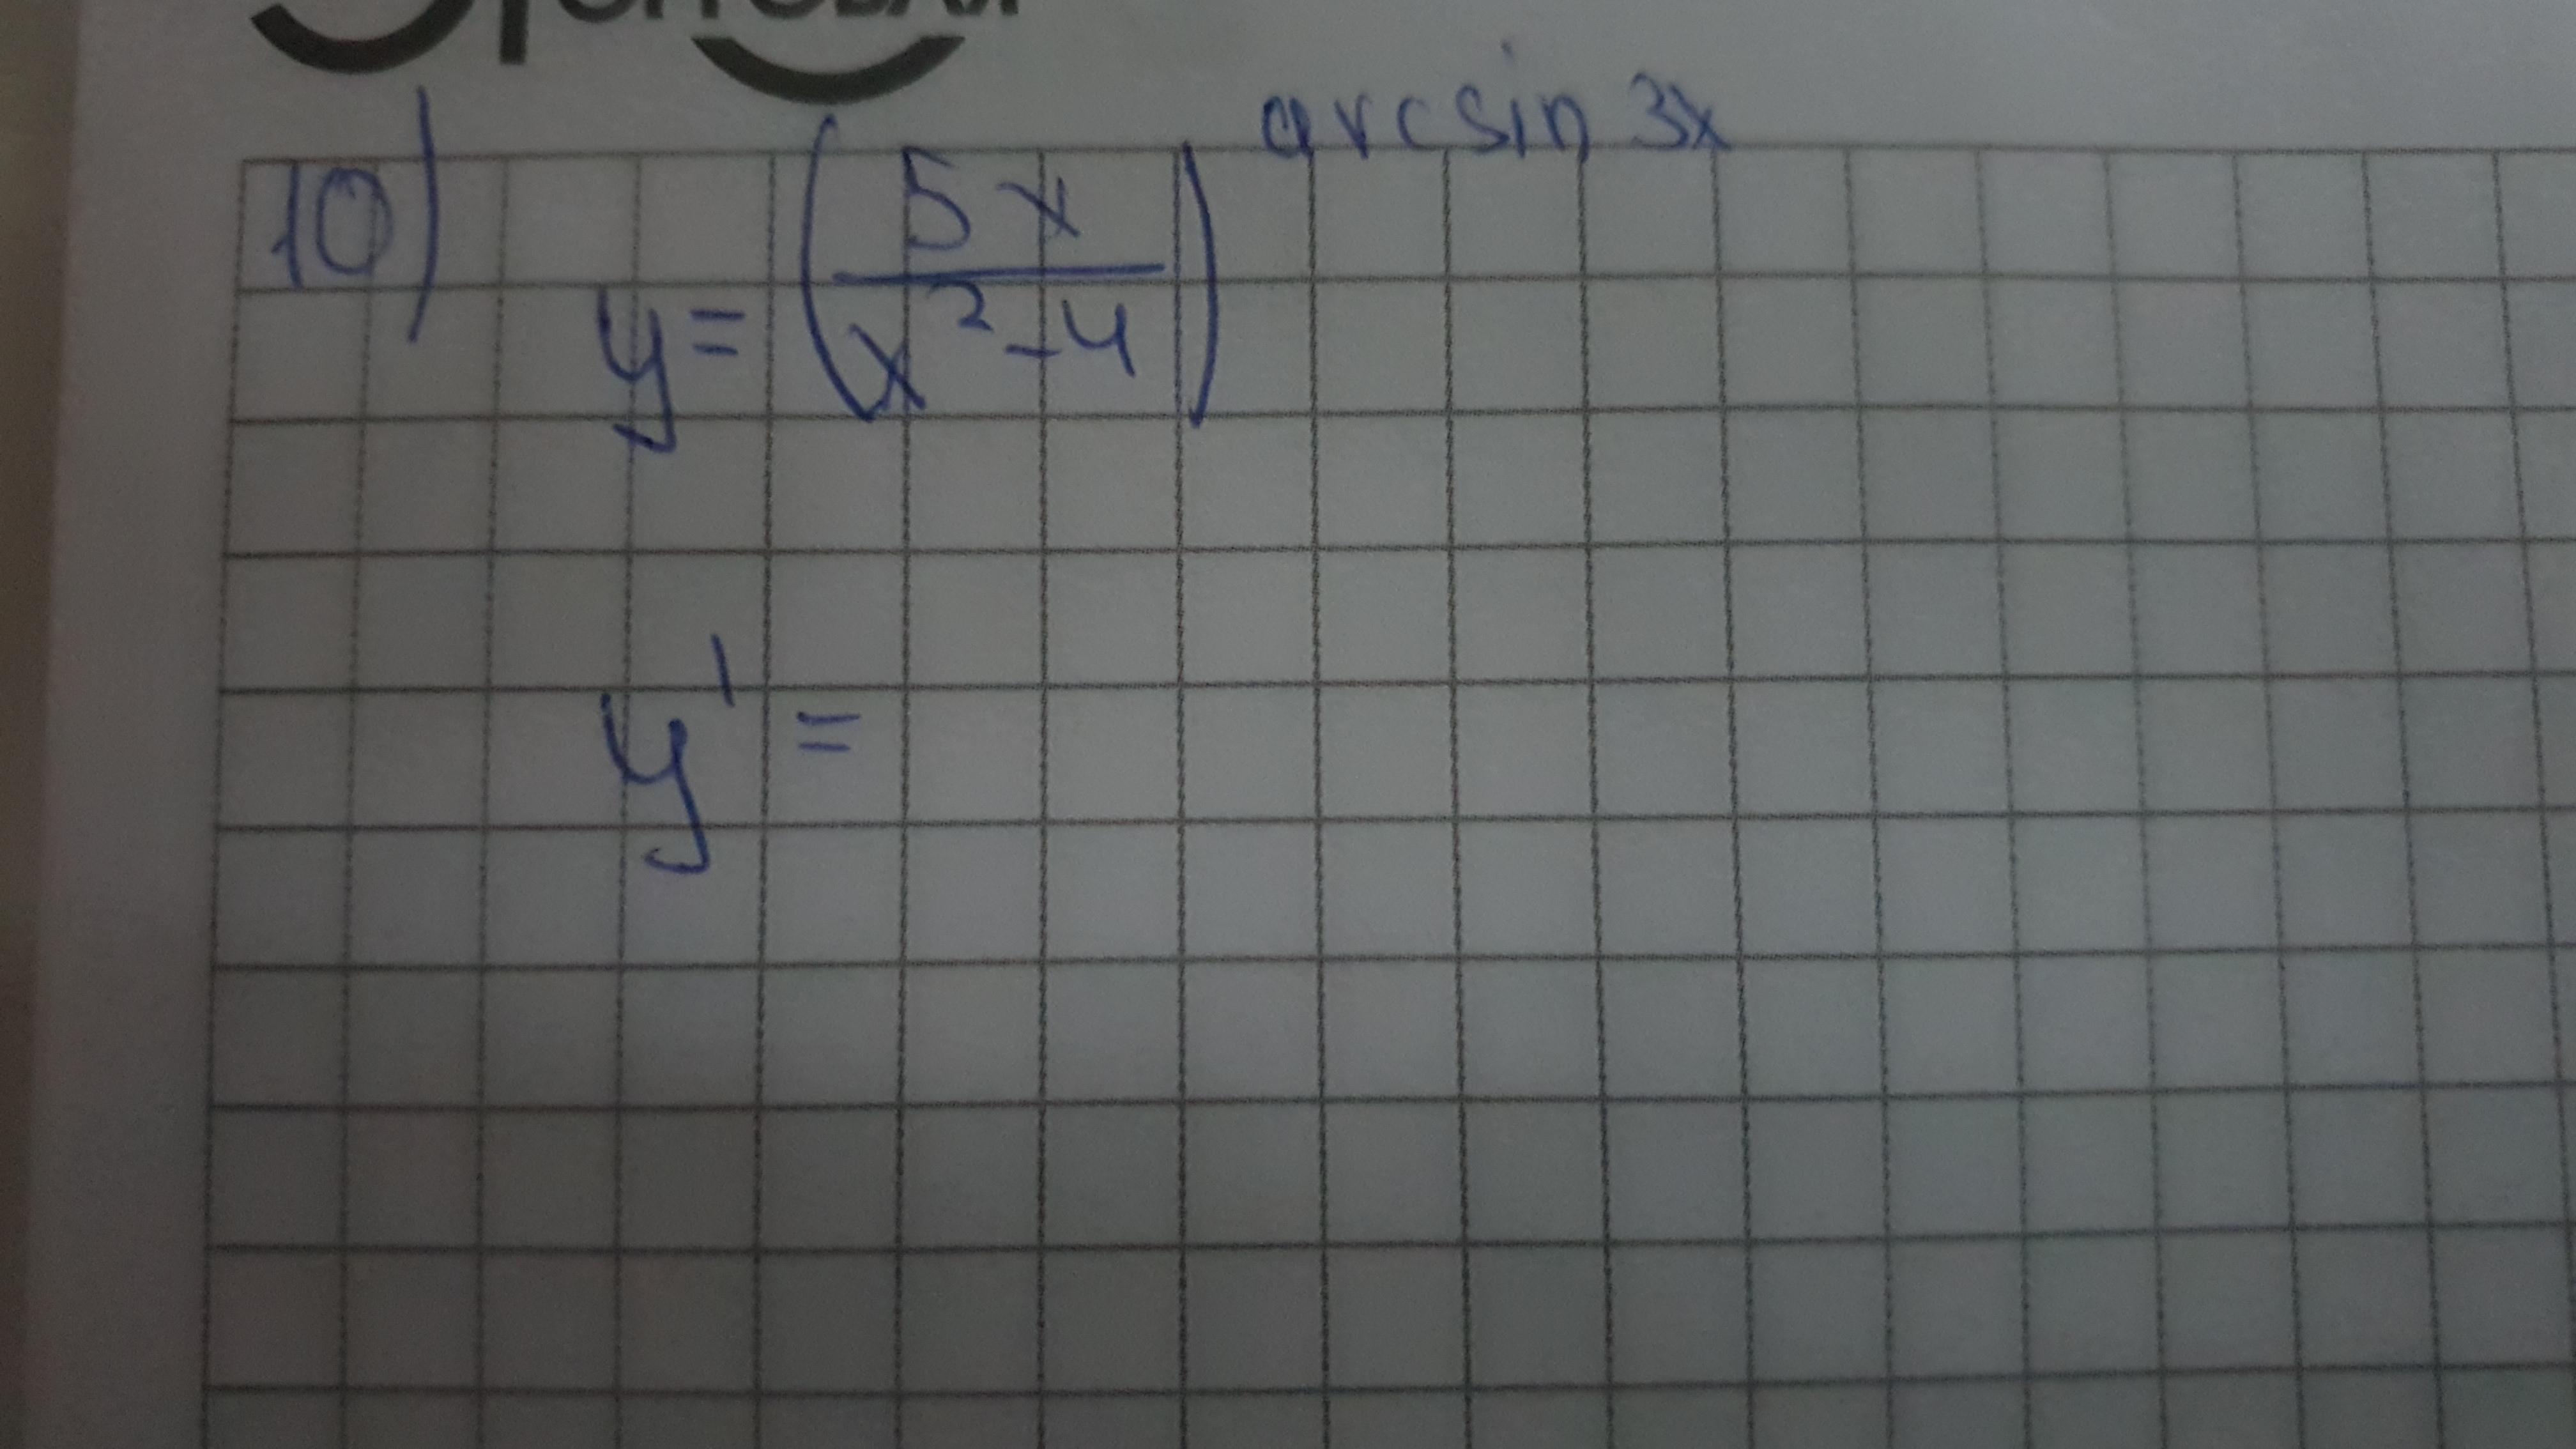 10) y = (5x / x² - 4)^arcsin 3x
y' =